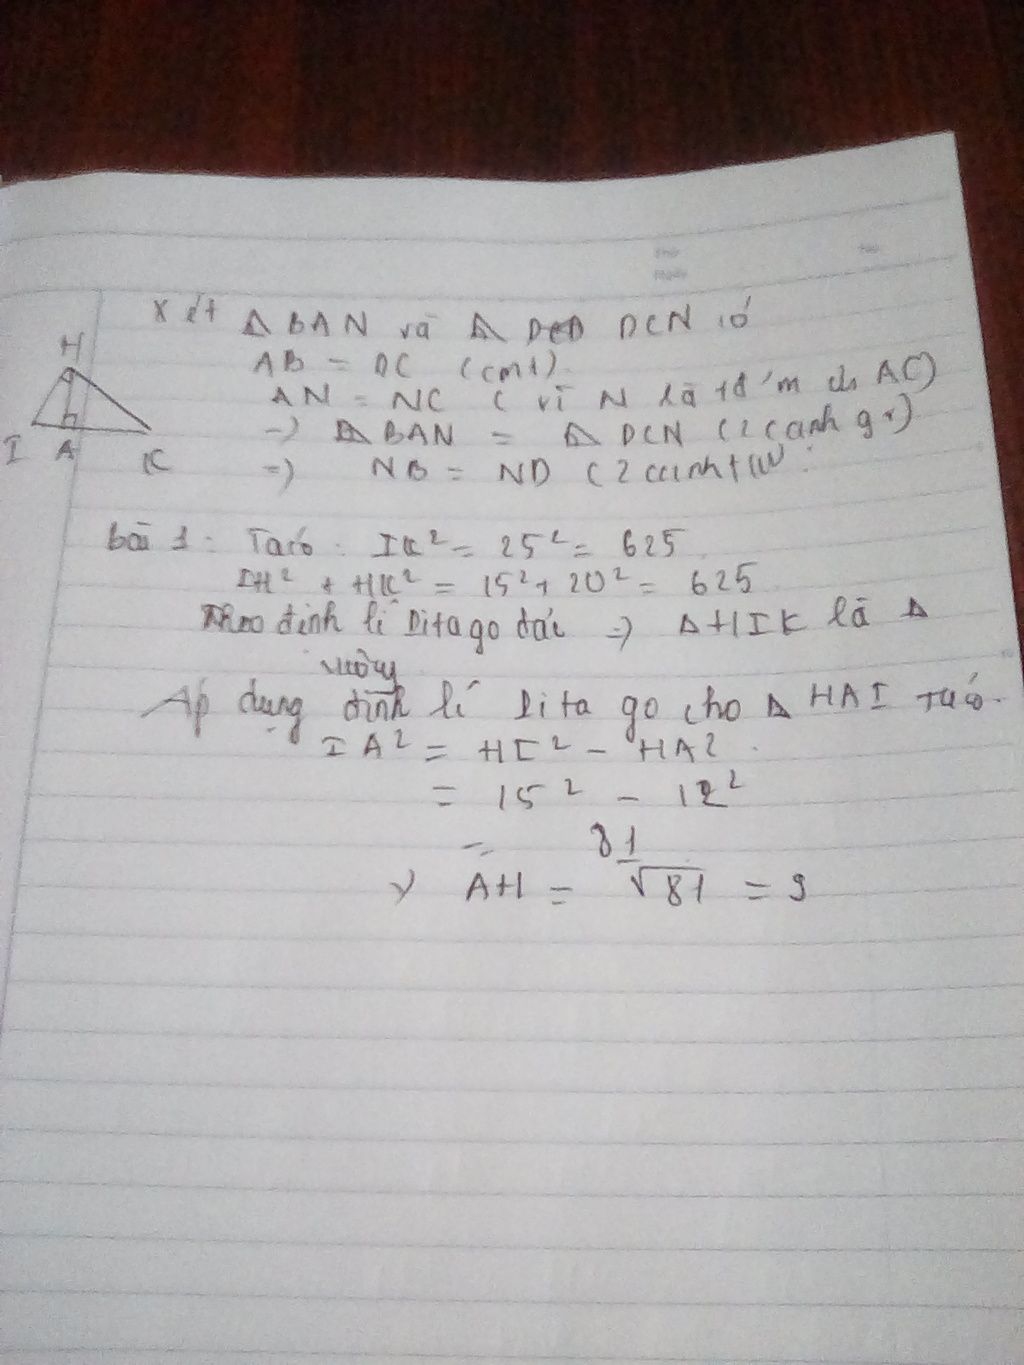 Xét Δ BAN và Δ DCN có
AB = DC (cmt).
AN = NC ( vì N là tđ'm của AC)
=> Δ BAN = Δ DCN (2 cạnh gv)
=> NB = ND ( 2 cạnh tứ :
H
I A K
bài 1 : Ta có : IK² = 25² = 625
IH² + HK² = 15² + 20² = 625
Theo định lí Pitago đảo => Δ HIK là Δ
vuông
Áp dụng định lí Pitago cho Δ HAI Ta có.
IA² = HI² - HA² .
= 15² - 12²
= 81
AH = √81 = 9